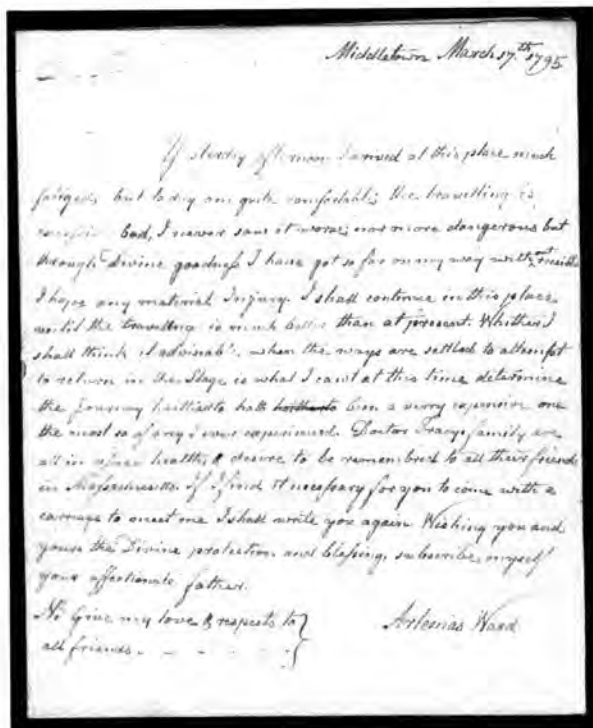 Middletown March 17.th 1795
Yesterday afternoon I arrived at this place much
fatigued, but to day am quite comfortable; the travelling is
bad, I never saw it worse; nor more dangerous but
through Divine goodness I have got so far on my way without
I hope any material Injury. I shall continue in this place
until the travelling is much better than at present. Whither I
shall think it advisable, when the ways are settled to attempt
to return in the Stage is what I cant at this time determine
the Journey hitherto hath been a very expensive one
the most so of any I ever experienced. Doctor Tracys family are
all in health, & desire to be remembred to all their friends
in Massachusetts. If I find it necessary for you to come with a
carriage to meet me I shall write you again Wishing you and
yours the Divine protection and blessing, subscribe myself
your affectionate father.
Artemas Ward
Give my love & respects to
all friends